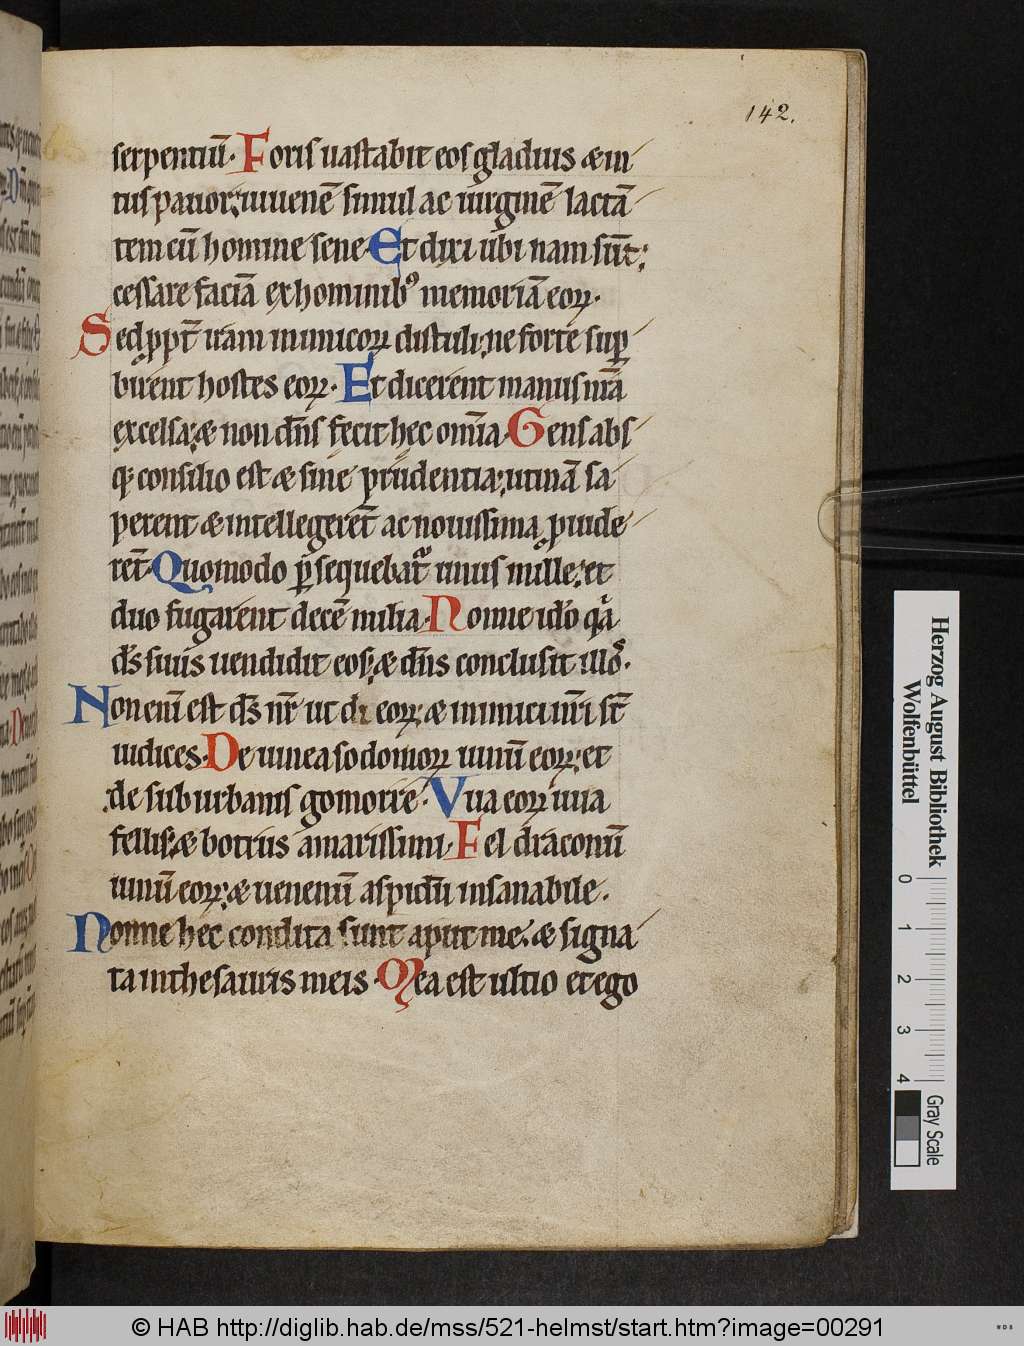 142.
serpentiū. Foris uastabit eos gladius æ in
tus pauor; iuuenē simul ac uirginē lactā
tem cū homine sene. Et dixi ubi nam sūt;
cessare faciā ex hominibꝰ memoriā eoꝝ.
Sed ꝓpt̄ iram inimicoꝝ distuli; ne forte suꝑ
birent hostes eoꝝ. Et dicerent manus nr̄a
excelsa; æ non dn̄s fecit hec om̄ia. Gens abs
qꝫ consilio est æ sine prudentia; utinā sa
perent æ intellegerēt ac nouissima ꝓuide
rēt. Quomodo ꝑsequebat᷑ unus mille; et
duo fugarent decē milia. Nonne ido̓ qͣa
ds̄ suus uendidit eos; æ dn̄s conclusit illoˢ.
Non eni̅ est ds̄ nr̄ ut di eoꝝ; æ inimici nr̄i st̄
iudices. De uinea sodomoꝝ uinū eoꝝ; et
de suburbanis gomorre. Vua eoꝝ uua
fellis; æ botrus amarissimi. Fel draconū
uinū eoꝝ; æ uenenū aspidū insanabile.
Nonne hec condita sunt aput me; æ signa
ta in thesauris meis. Mea est ultio et ego
Herzog August Bibliothek
Wolfenbüttel
0 1 2 3 4
Gray Scale
© HAB http://diglib.hab.de/mss/521-helmst/start.htm?image=00291